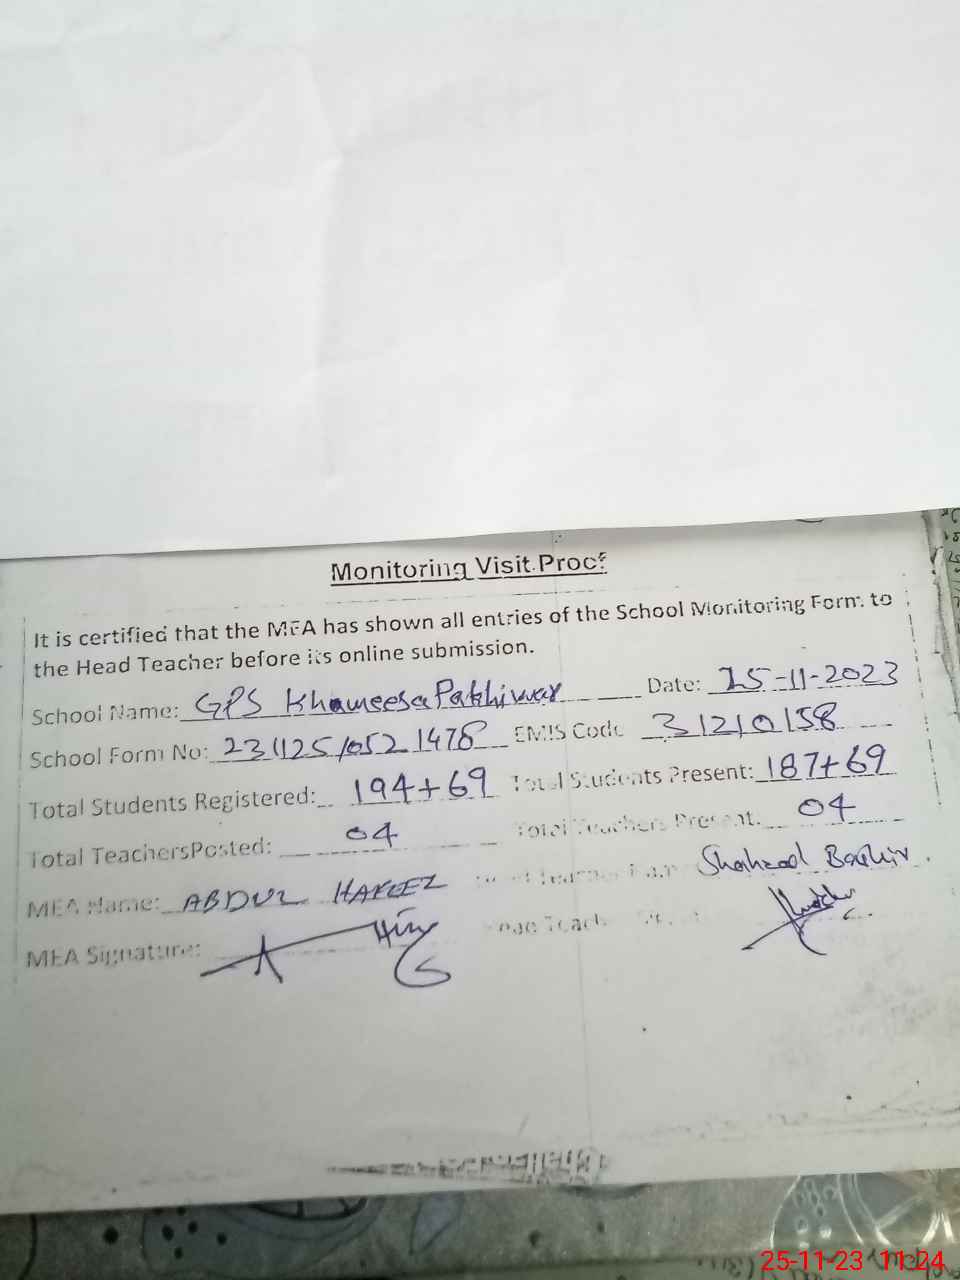 Monitoring Visit Proof
It is certified that the MEA has shown all entries of the School Monitoring Form to
the Head Teacher before its online submission.
School Name: GPS Khameesa Pakhiwar Date: 25-11-2023
School Form No: 231125/0521478 EMIS Code 31210158
Total Students Registered: 194+69 Total Students Present: 187+69
Total TeachersPosted: 04 Total Teachers Present: 04
MEA Name: ABDUL HAFEEZ Head Teacher Name Shahzad Bashir
MEA Signature: Head Teacher
25-11-23 11:24